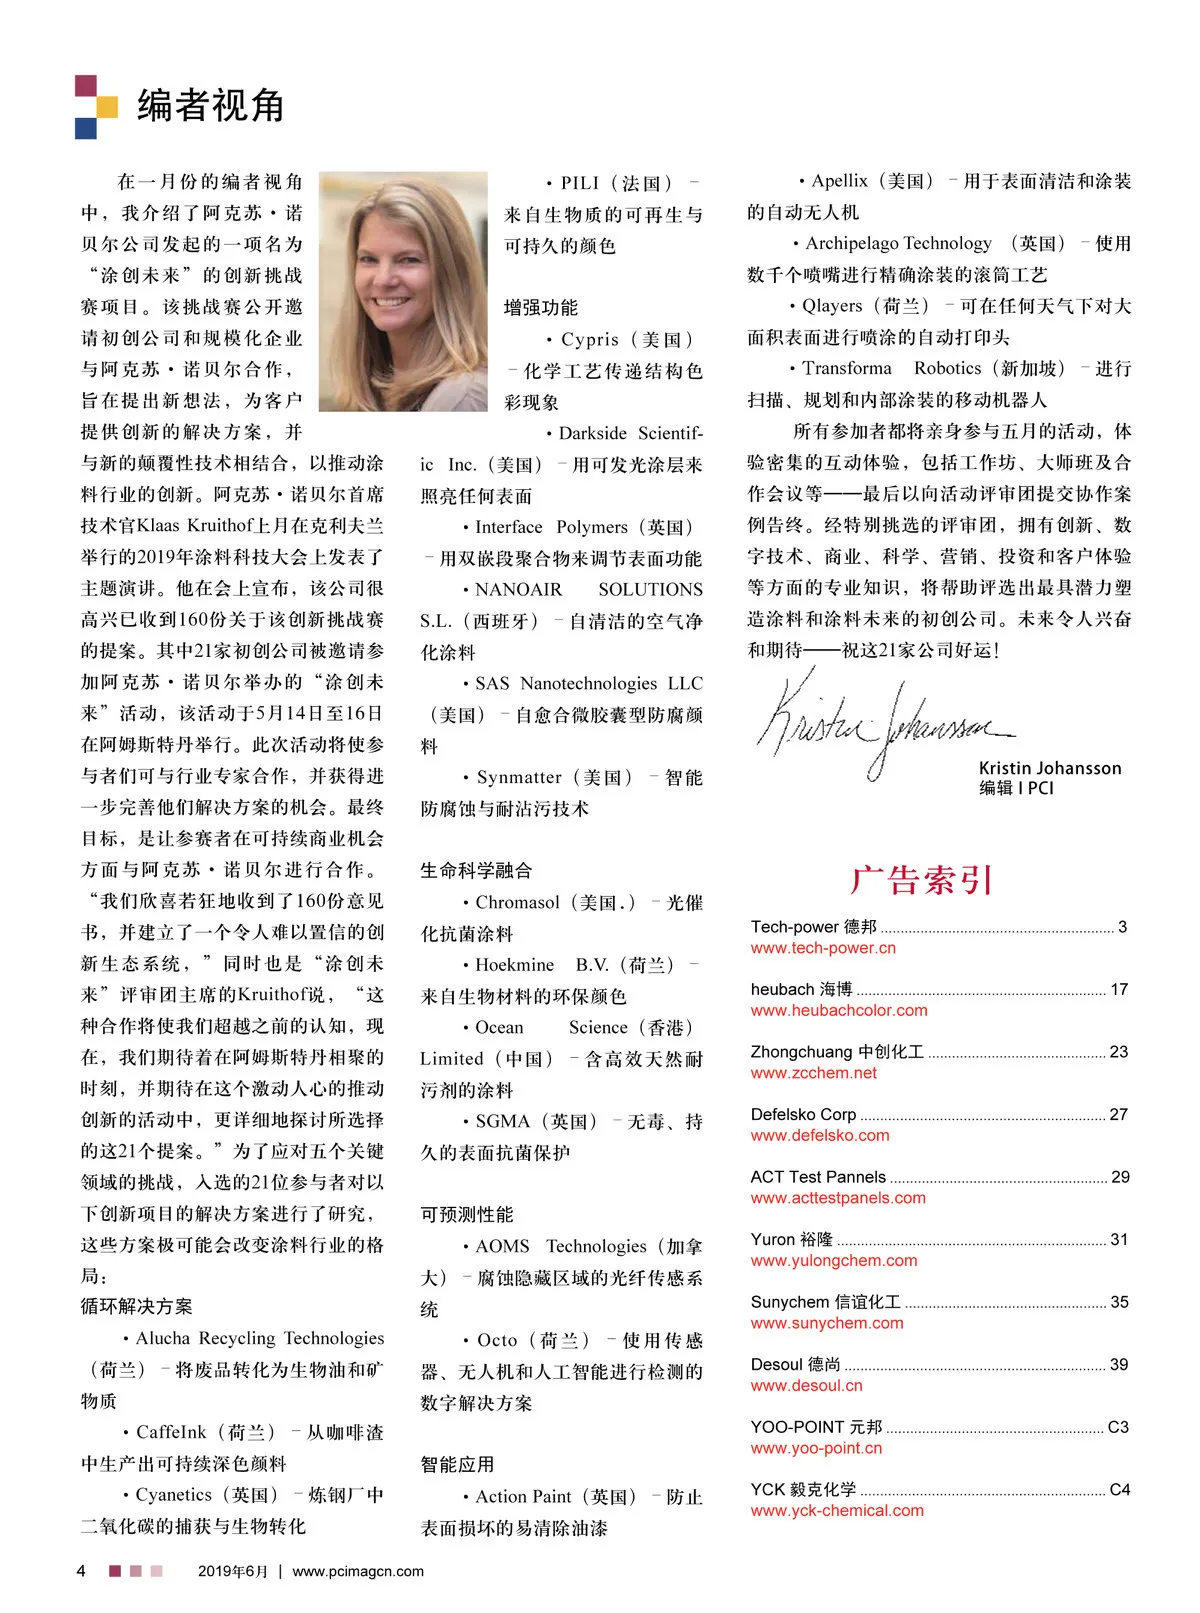 编者视角
在一月份的编者视角
中，我介绍了阿克苏·诺
贝尔公司发起的一项名为
“涂创未来”的创新挑战
赛项目。该挑战赛公开邀
请初创公司和规模化企业
与阿克苏·诺贝尔合作，
旨在提出新想法，为客户
提供创新的解决方案，并
与新的颠覆性技术相结合，以推动涂
料行业的创新。阿克苏·诺贝尔首席
技术官Klaas Kruithof上月在克利夫兰
举行的2019年涂料科技大会上发表了
主题演讲。他在会上宣布，该公司很
高兴已收到160份关于该创新挑战赛
的提案。其中21家初创公司被邀请参
加阿克苏·诺贝尔举办的“涂创未
来”活动，该活动于5月14日至16日
在阿姆斯特丹举行。此次活动将使参
与者们可与行业专家合作，并获得进
一步完善他们解决方案的机会。最终
目标，是让参赛者在可持续商业机会
方面与阿克苏·诺贝尔进行合作。
“我们欣喜若狂地收到了160份意见
书，并建立了一个令人难以置信的创
新生态系统，”同时也是“涂创未
来”评审团主席的Kruithof说，“这
种合作将使我们超越之前的认知，现
在，我们期待着在阿姆斯特丹相聚的
时刻，并期待在这个激动人心的推动
创新的活动中，更详细地探讨所选择
的这21个提案。”为了应对五个关键
领域的挑战，入选的21位参与者对以
下创新项目的解决方案进行了研究，
这些方案极可能会改变涂料行业的格
局：
循环解决方案
·Alucha Recycling Technologies
（荷兰）–将废品转化为生物油和矿
物质
·CaffeInk（荷兰）–从咖啡渣
中生产出可持续深色颜料
·Cyanetics（英国）–炼钢厂中
二氧化碳的捕获与生物转化
·PILI（法国）–
来自生物质的可再生与
可持久的颜色
增强功能
·Cypris（美国）
–化学工艺传递结构色
彩现象
·Darkside Scientif-
ic Inc.（美国）–用可发光涂层来
照亮任何表面
·Interface Polymers（英国）
–用双嵌段聚合物来调节表面功能
·NANOAIR SOLUTIONS
S.L.（西班牙）–自清洁的空气净
化涂料
·SAS Nanotechnologies LLC
（美国）–自愈合微胶囊型防腐颜
料
·Synmatter（美国）–智能
防腐蚀与耐沾污技术
生命科学融合
·Chromasol（美国.）–光催
化抗菌涂料
·Hoekmine B.V.（荷兰）–
来自生物材料的环保颜色
·Ocean Science（香港）
Limited（中国）–含高效天然耐
污剂的涂料
·SGMA（英国）–无毒、持
久的表面抗菌保护
可预测性能
·AOMS Technologies（加拿
大）–腐蚀隐藏区域的光纤传感系
统
·Octo（荷兰）–使用传感
器、无人机和人工智能进行检测的
数字解决方案
智能应用
·Action Paint（英国）–防止
表面损坏的易清除油漆
·Apellix（美国）–用于表面清洁和涂装
的自动无人机
·Archipelago Technology （英国）–使用
数千个喷嘴进行精确涂装的滚筒工艺
·Qlayers（荷兰）–可在任何天气下对大
面积表面进行喷涂的自动打印头
·Transforma Robotics（新加坡）–进行
扫描、规划和内部涂装的移动机器人
所有参加者都将亲身参与五月的活动，体
验密集的互动体验，包括工作坊、大师班及合
作会议等——最后以向活动评审团提交协作案
例告终。经特别挑选的评审团，拥有创新、数
字技术、商业、科学、营销、投资和客户体验
等方面的专业知识，将帮助评选出最具潜力塑
造涂料和涂料未来的初创公司。未来令人兴奋
和期待——祝这21家公司好运！
Kristin Johansson
Kristin Johansson
编辑 I PCI
广告索引
Tech-power 德邦 ........ 3
www.tech-power.cn
heubach 海博 ........ 17
www.heubachcolor.com
Zhongchuang 中创化工 ........ 23
www.zcchem.net
Defelsko Corp ........ 27
www.defelsko.com
ACT Test Pannels ........ 29
www.acttestpanels.com
Yuron 裕隆 ........ 31
www.yulongchem.com
Sunychem 信谊化工 ........ 35
www.sunychem.com
Desoul 德尚 ........ 39
www.desoul.cn
YOO-POINT 元邦 ........ C3
www.yoo-point.cn
YCK 毅克化学 ........ C4
www.yck-chemical.com
4 2019年6月 | www.pcimagcn.com